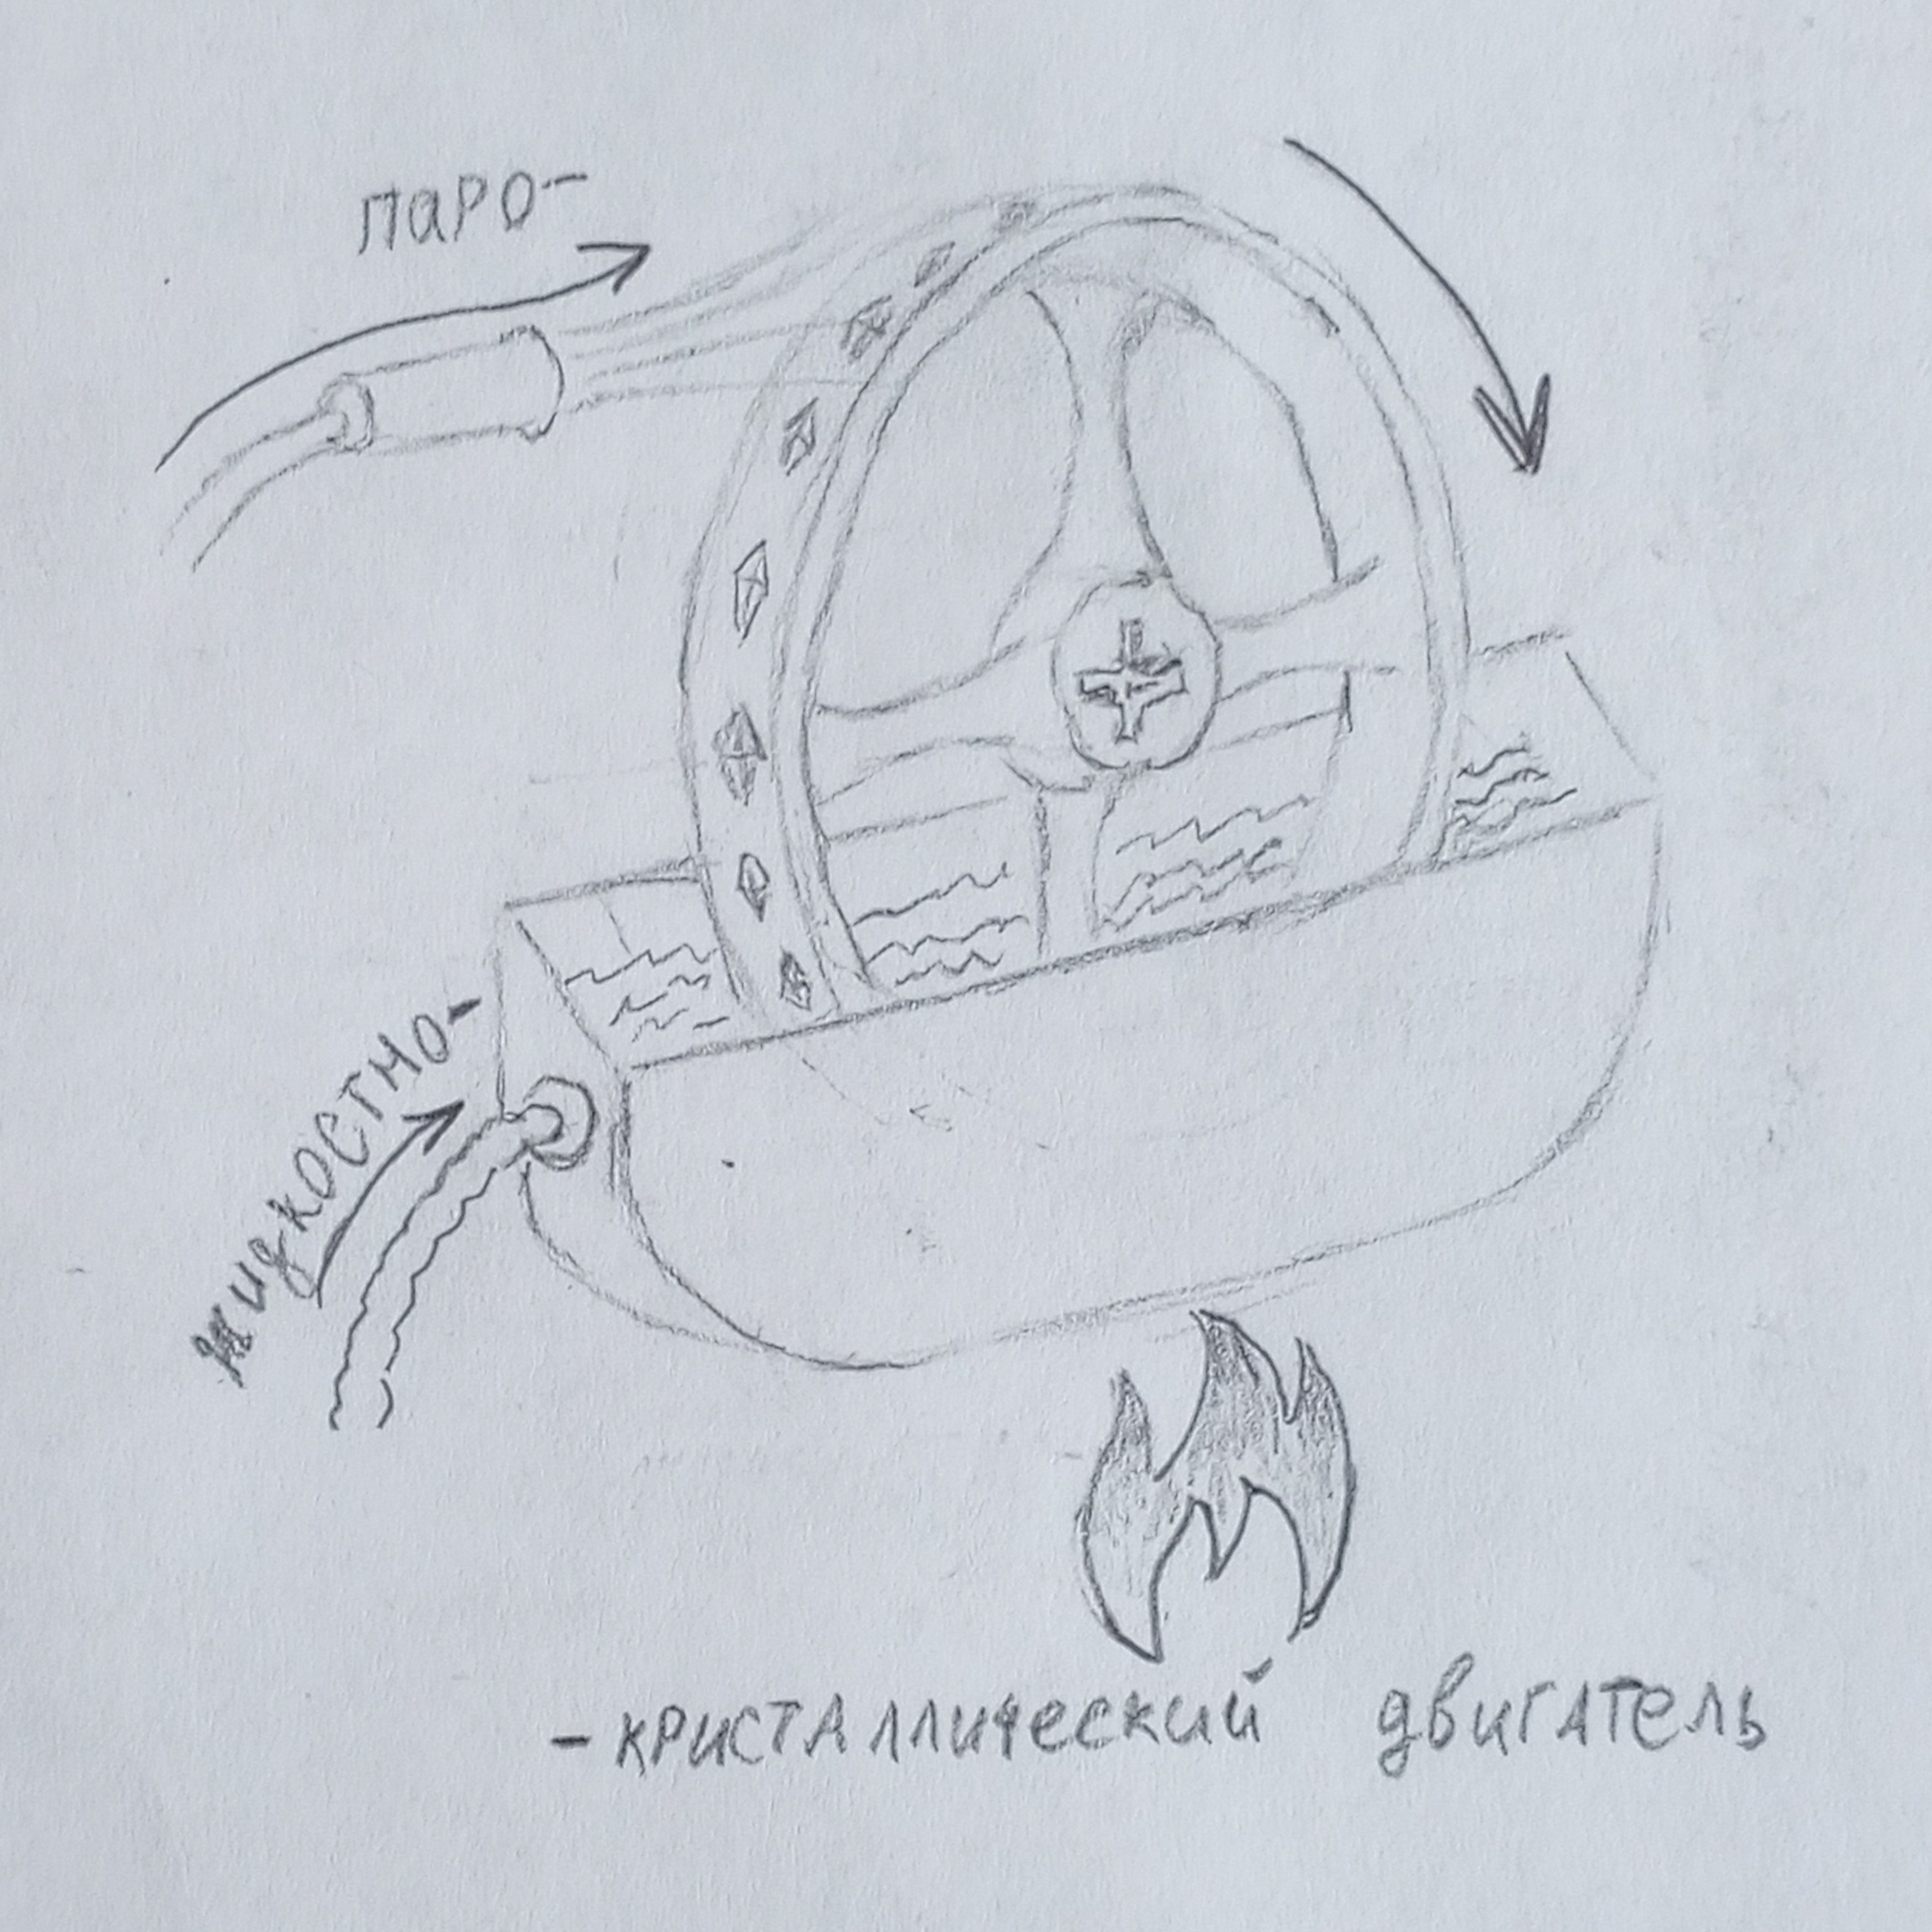 паро-
жидкостно-
-кристаллический двигатель